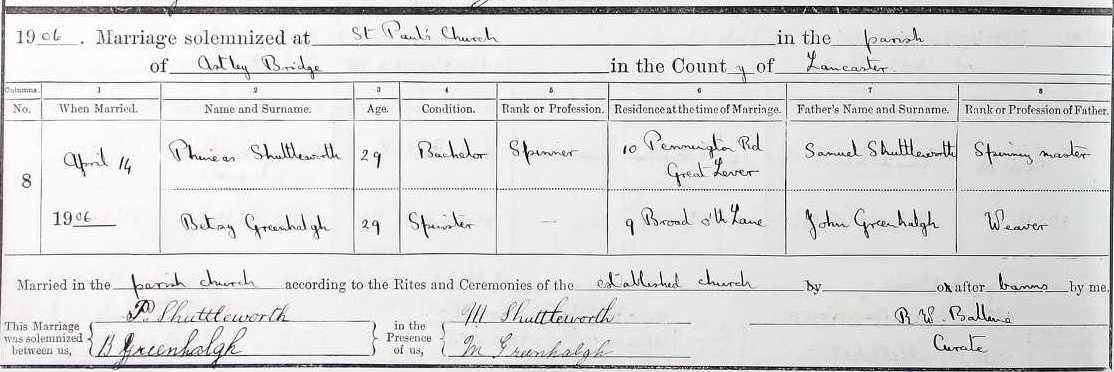 1906. Marriage solemnized at St Paul's Church in the parish
of Astley Bridge in the County of Lancaster.
Columns. 1 2 3 4 5 6 7 8
No. When Married. Name and Surname. Age. Condition. Rank or Profession. Residence at the time of Marriage. Father's Name and Surname. Rank or Profession of Father.
8 April 14 Phineas Shuttleworth 29 Bachelor Spinner 10 Pennington Rd Great Lever Samuel Shuttleworth Spinning master
1906 Betsy Greenhalgh 29 Spinster — 9 Broad o'th Lane John Greenhalgh Weaver
Married in the parish church according to the Rites and Ceremonies of the established church by or after banns by me,
This Marriage was solemnized between us, P. Shuttleworth in the Presence of us, M Shuttleworth R W
B Greenhalgh M Greenhalgh Curate